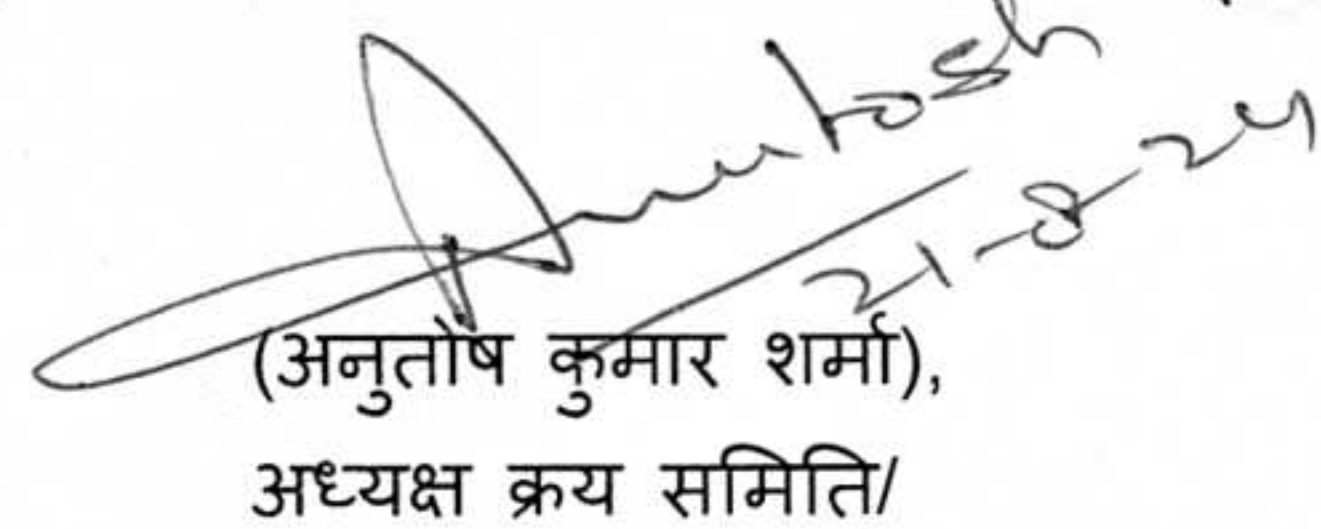 Anutosh
21-8-24
(अनुतोष कुमार शर्मा),
अध्यक्ष क्रय समिति/